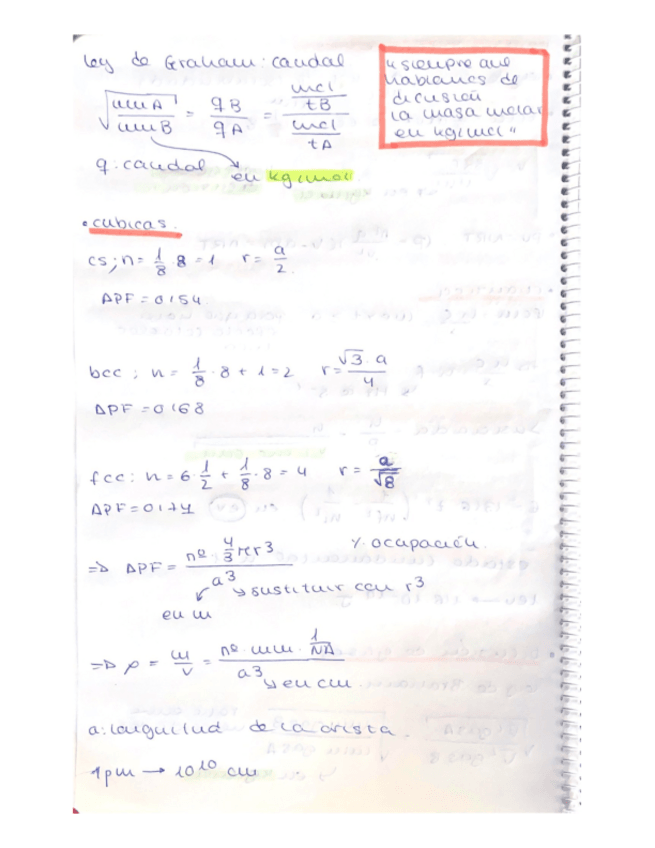 ley de Graham: caudal
√(mm A / mm B) = qB / qA = (mol / tB) / (mol / tA)
q: caudal en kg/mol
"siempre que
hablamos de
dicusión
la masa molar
en kg/mol"
• cubicas.
cs; n = 1/8 · 8 = 1 r = a/2.
APF = 0'54.
bcc; n = 1/8 · 8 + 1 = 2 r = √3 · a / 4
APF = 0'68
fcc: n = 6 · 1/2 + 1/8 · 8 = 4 r = a/√8
APF = 0'74
=> APF = nº · 4/3 π r3 / a3 % ocupación.
en m sustituir con r3
=> ρ = m/v = nº · mm · 1/NA / a3
en cm.
a: longuitud de la arista.
1pm → 10^10 cm